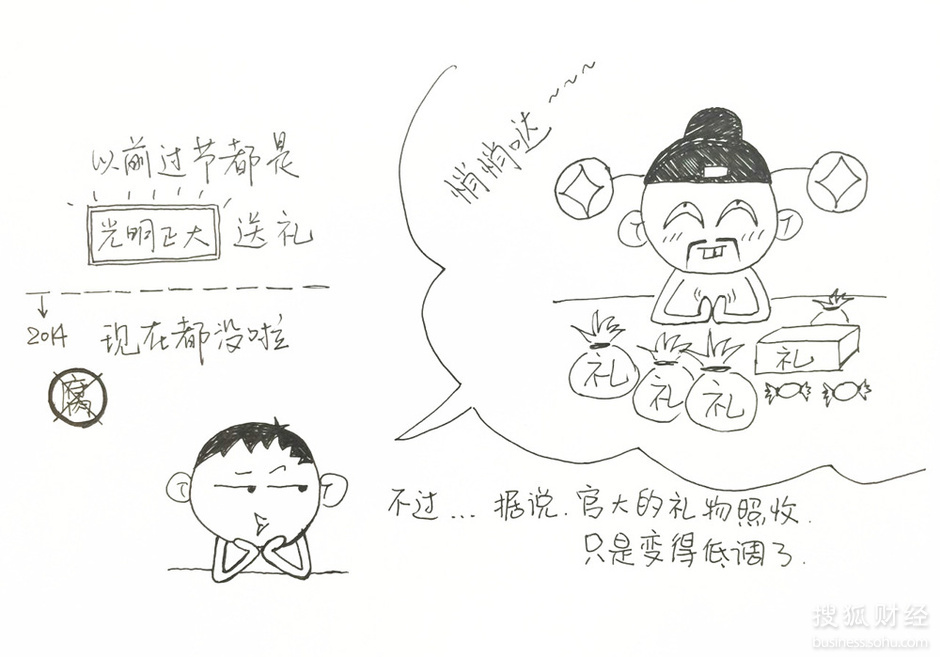 以前过节都是
光明正大 送礼
2014 现在都没啦
腐
悄悄哒~~~
礼
礼
礼
礼
不过...据说.官大的礼物照收.
只是变得低调了.
搜狐财经
business.sohu.com